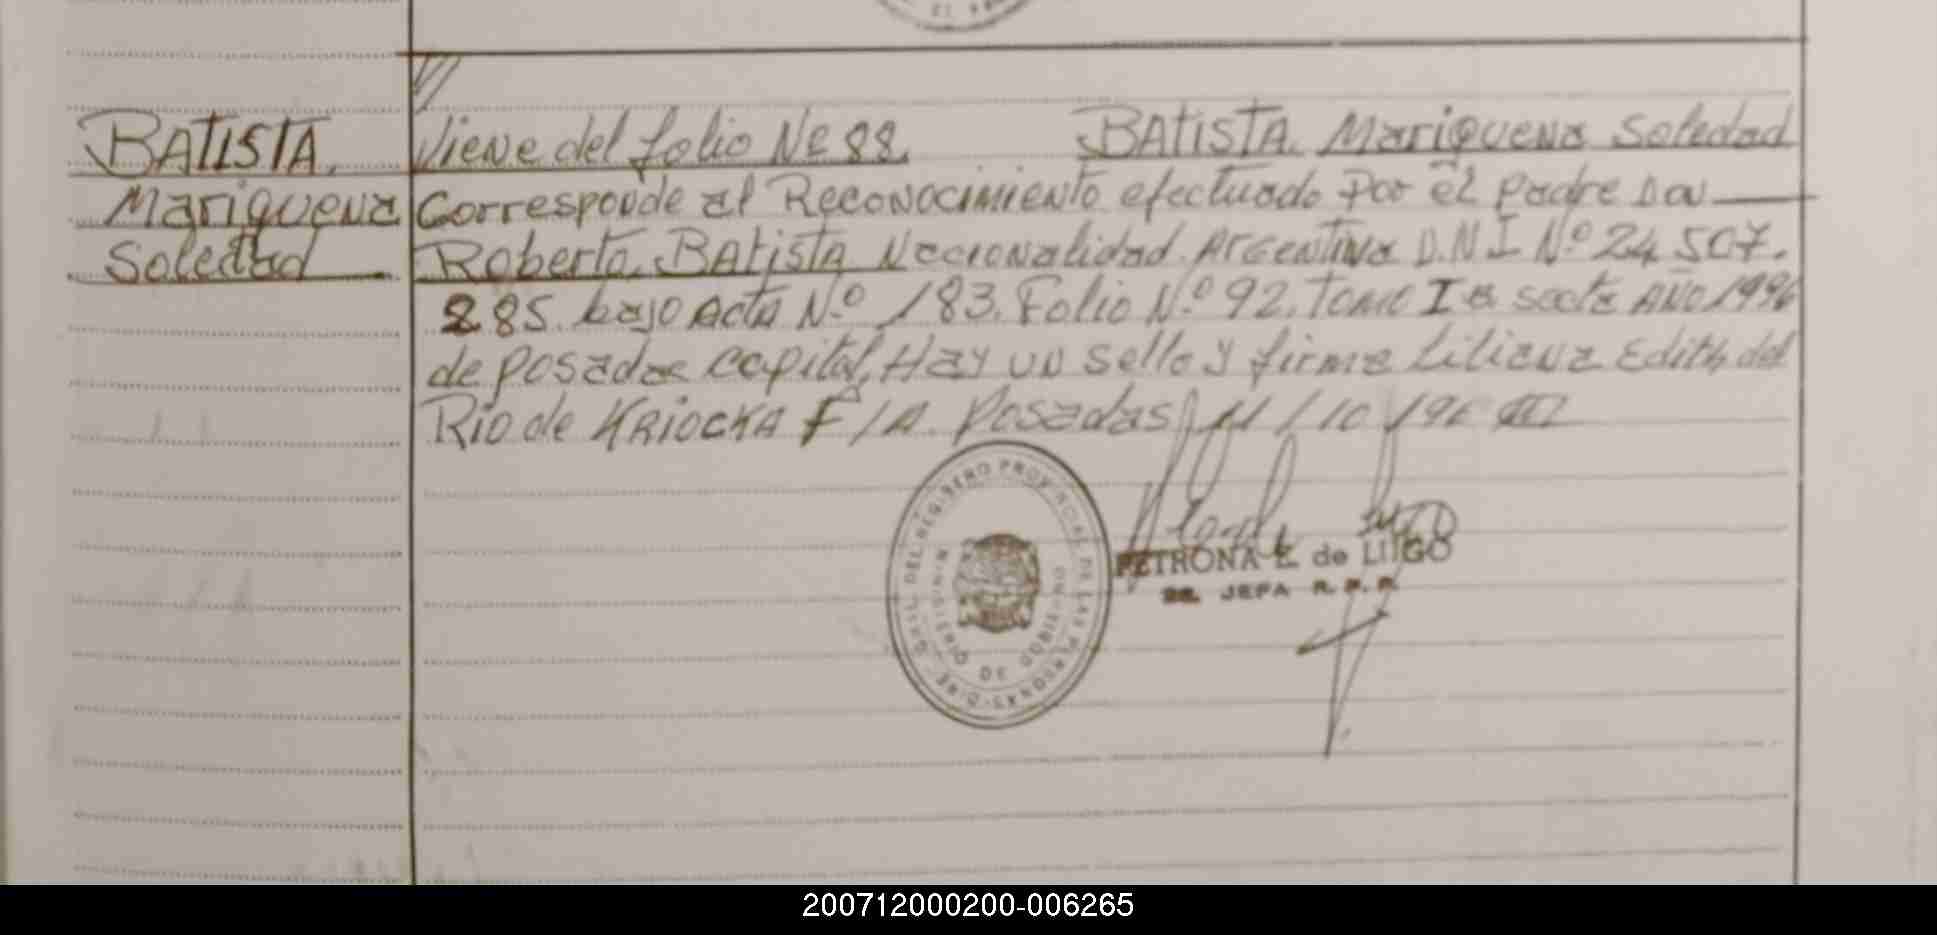 BATISTA, Mariquena Soledad
Viene del folio Nº 88. BATISTA, Mariquena Soledad
Corresponde al Reconocimiento efectuado Por el Padre Don
Roberto, BATISTA Nacionalidad Argentina D.N.I Nº 24 507.
285. bajo Acta Nº 183. Folio Nº 92. Tomo I secta AÑO 1996
de Posadas capital, Hay un sello y firma Liliana Edith del
Rio de KRIOCKA F/A. Posadas, 11/10/96
PETRONA E. de LUGO
JEFA R. P. P.
DEL REGISTRO PROVINCIAL DE LAS PERSONAS
200712000200-006265